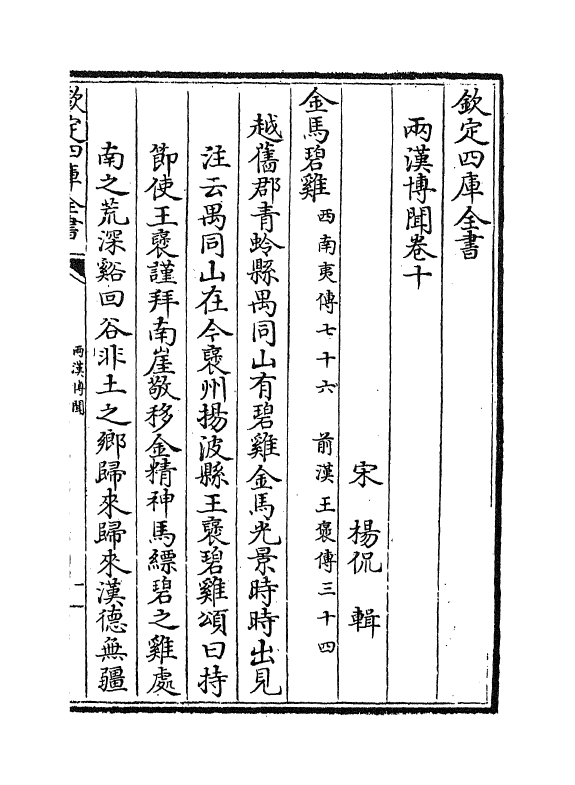 欽定四庫全書
兩漢博聞卷十
宋 楊侃 輯
金馬碧雞 西南夷傳七十六 前漢王褒傳三十四
越舊郡青蛉縣禺同山有碧雞金馬光景時時出見
注云禺同山在今褒州揚波縣王褒碧雞頌曰持
節使王褒謹拜南崖敬移金精神馬縹碧之雞處
南之荒深谿回谷非土之鄉歸來歸來漢德無疆
欽定四庫全書
兩漢博聞
一